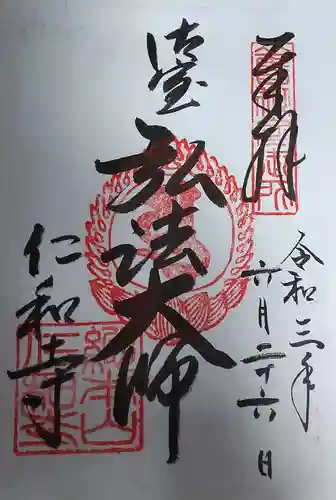 奉拝
令和三年
六月二十六日
弘法大師
仁和寺